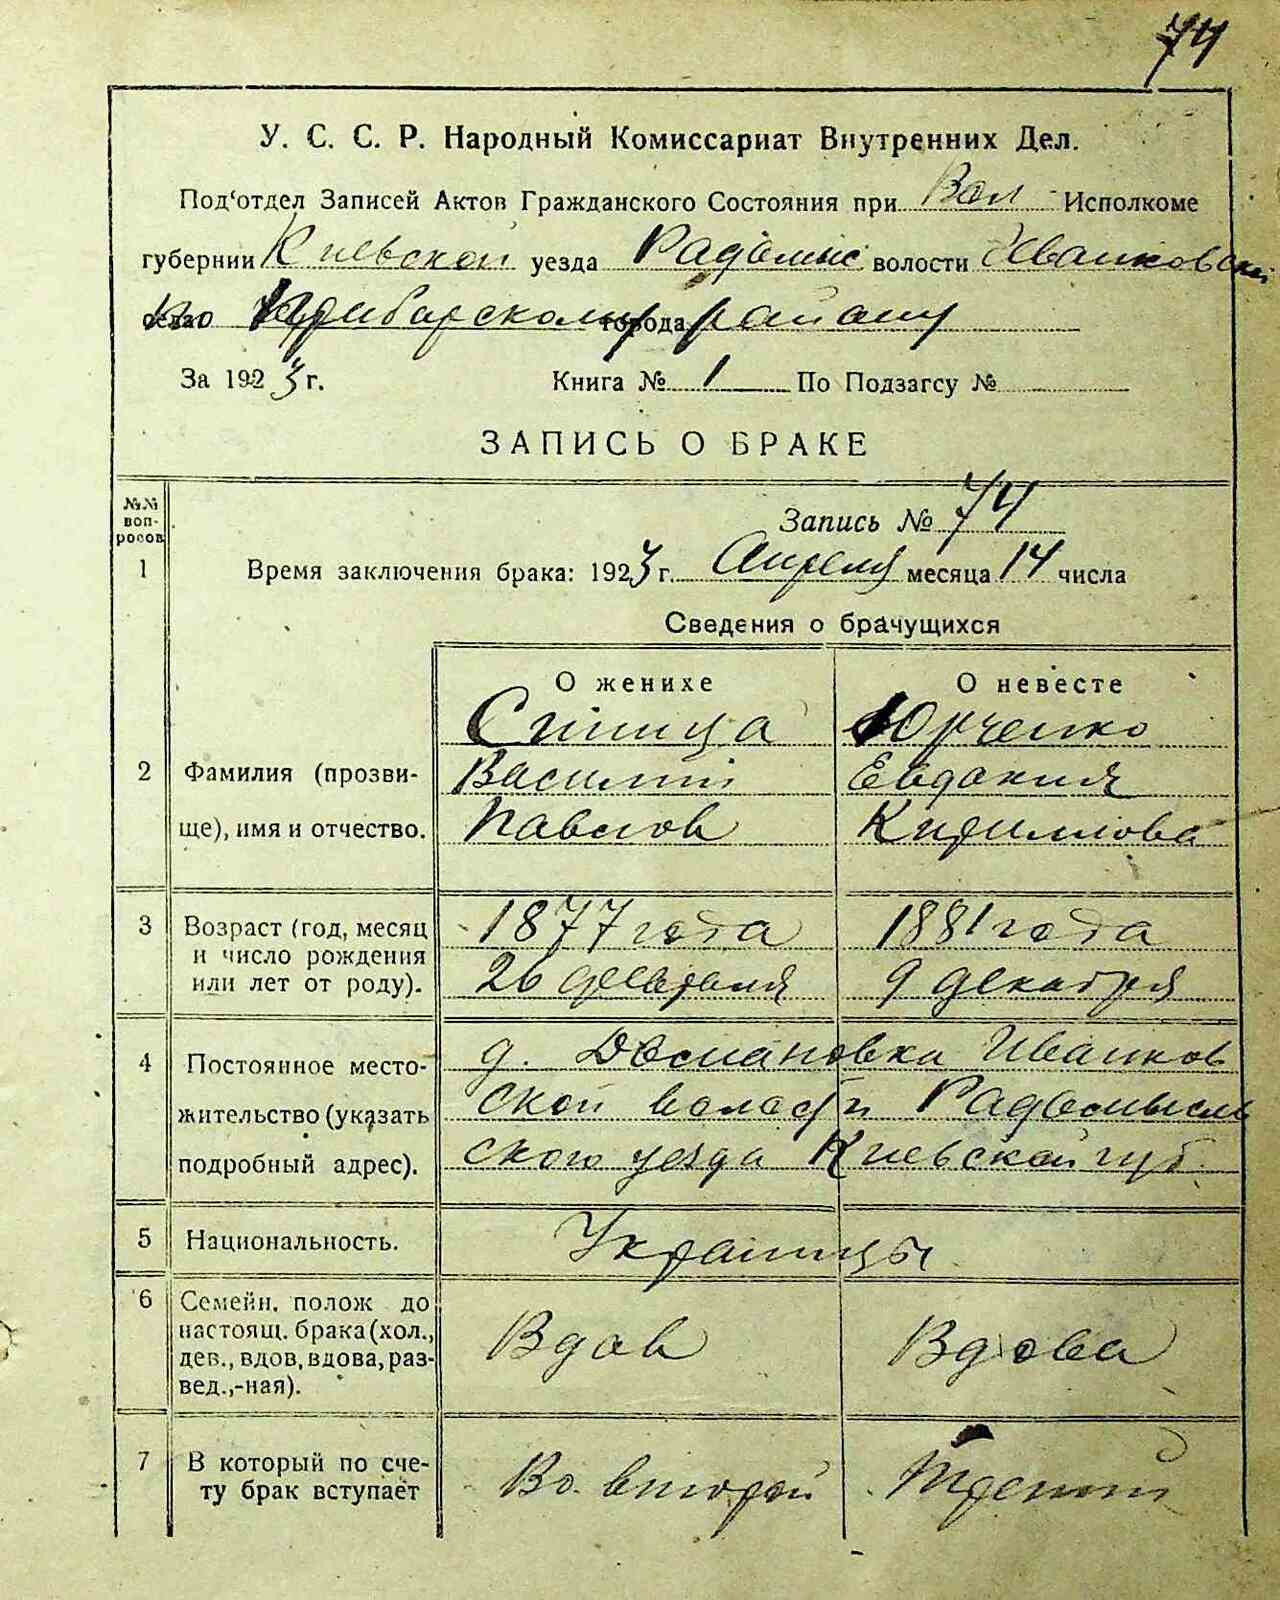 74
У. С. С. Р. Народный Комиссариат Внутренних Дел.
Под‘отдел Записей Актов Гражданского Состояния при Вол Исполкоме
губернии Киевской уезда Радомыс волости Иванковской
по Прибарскому району города
За 1923 г. Книга № 1 По Подзагсу №
ЗАПИСЬ О БРАКЕ
№№ воп-
росов
Запись № 74
1 Время заключения брака: 1923 г. Апреля месяца 14 числа
Сведения о брачущихся
О женихе О невесте
Спица Юрченко
2 Фамилия (прозви- Василий Евдокия
ще), имя и отчество. Павлов Кириллова
3 Возраст (год, месяц 1877 года 1881 года
и число рождения
или лет от роду). 26 февраля 9 декабря
4 Постоянное место- д. Домановка Иванков
жительство (указать ской волости Радомысль
подробный адрес). ского уезда Киевской губ.
5 Национальность. Украинцы
6 Семейн. полож до
настоящ. брака (хол., Вдов Вдова
дев., вдов, вдова, раз-
вед.,-ная).
7 В который по сче- Во второй Третий
ту брак вступает